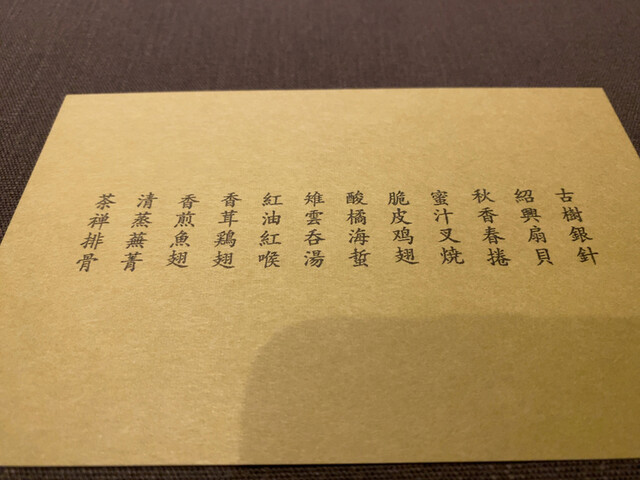 古樹銀針
紹興扇貝
秋香春捲
蜜汁叉焼
脆皮鸡翅
酸橘海蜇
雉雲呑湯
紅油紅喉
香茸鶏翅
香煎魚翅
清蒸蕪菁
茶禅排骨